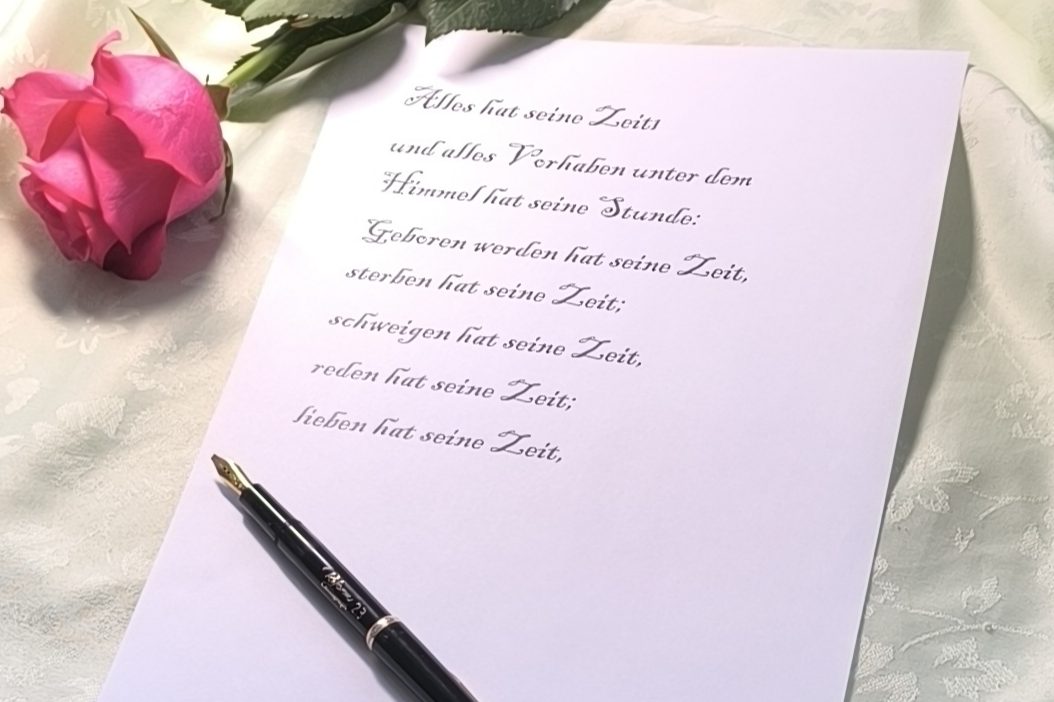 Alles hat seine Zeit!
und alles Vorhaben unter dem
Himmel hat seine Stunde:
Geboren werden hat seine Zeit,
sterben hat seine Zeit;
schweigen hat seine Zeit,
reden hat seine Zeit;
lieben hat seine Zeit,
23